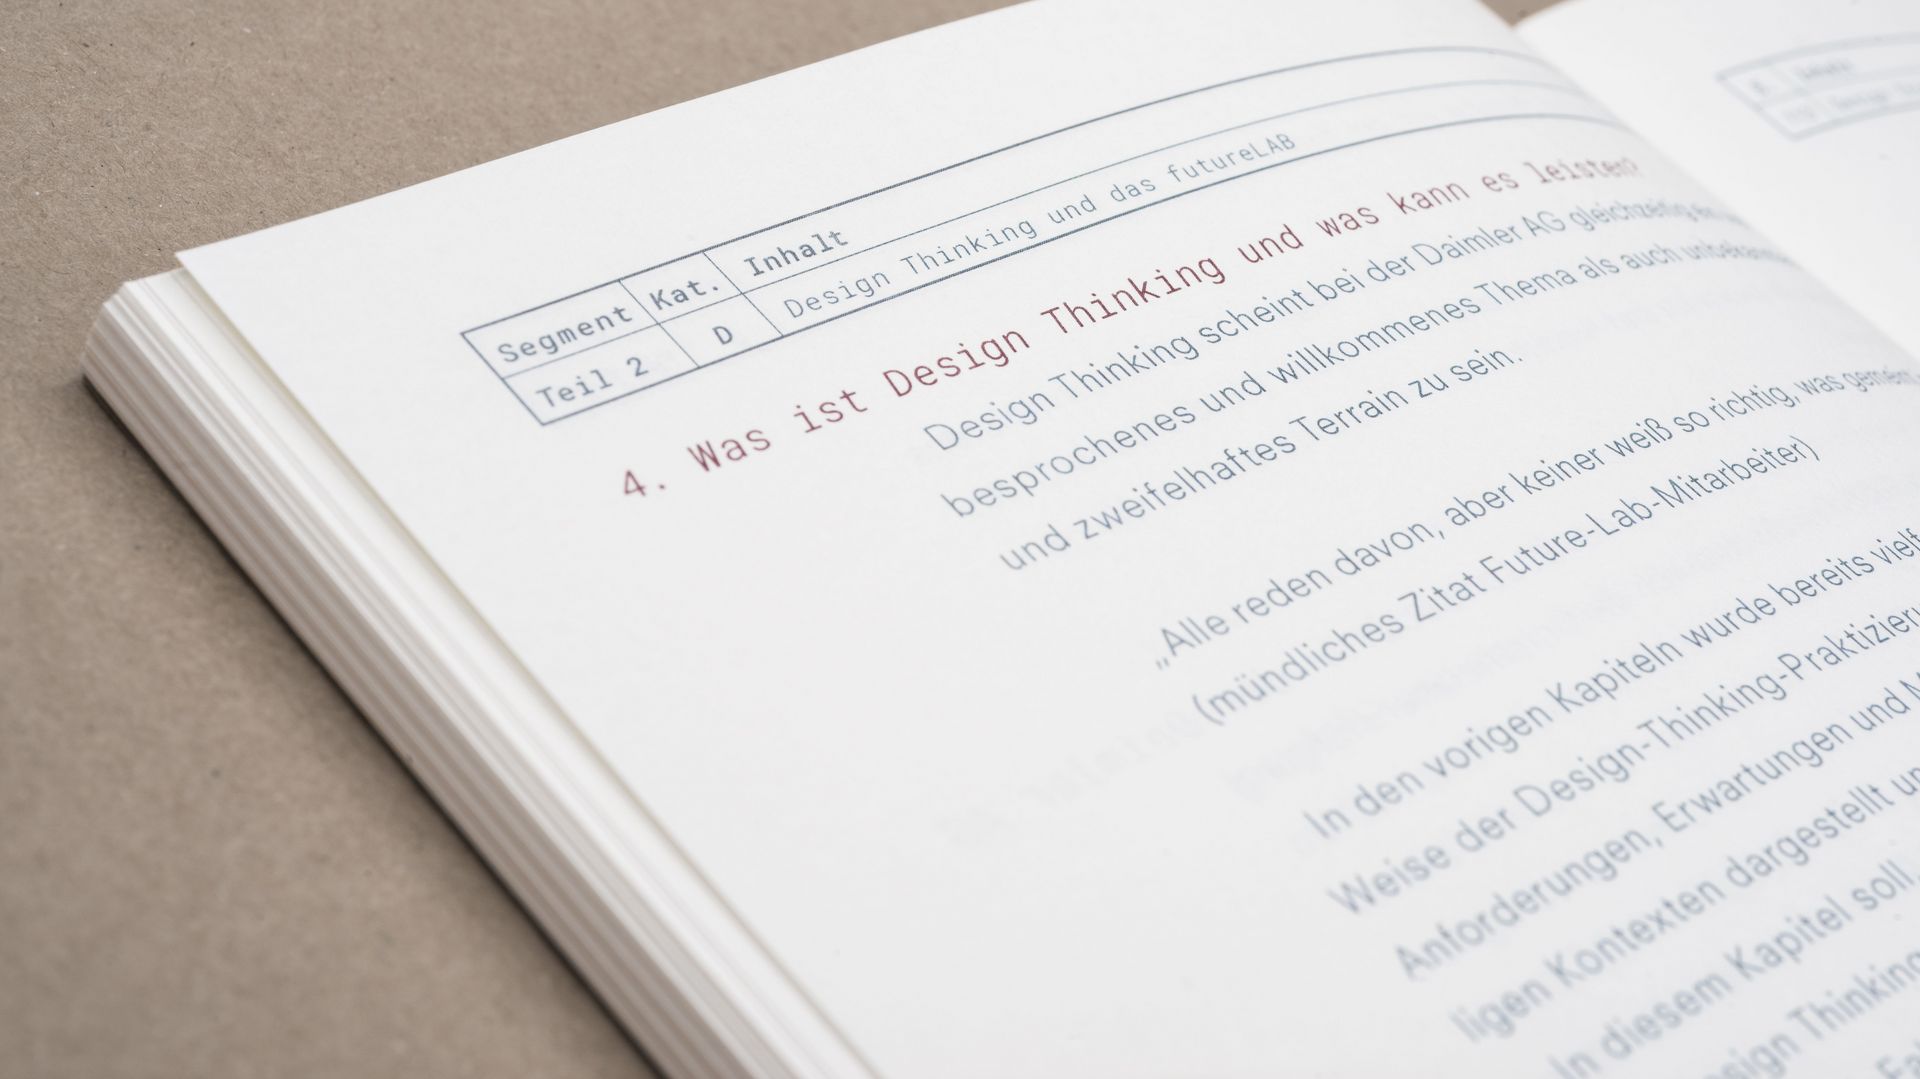 Segment Kat. Inhalt
Teil 2 D Design Thinking und das futureLAB
4. Was ist Design Thinking und was kann es leisten?
Design Thinking scheint bei der Daimler AG gleichzeitig
besprochenes und willkommenes Thema als auch
und zweifelhaftes Terrain zu sein.
„Alle reden davon, aber keiner weiß so richtig, was
(mündliches Zitat Future-Lab-Mitarbeiter)
In den vorigen Kapiteln wurde bereits
Weise der Design-Thinking-
Anforderungen, Erwartungen und
ligen Kontexten dargestellt
In diesem Kapitel soll
Thinking